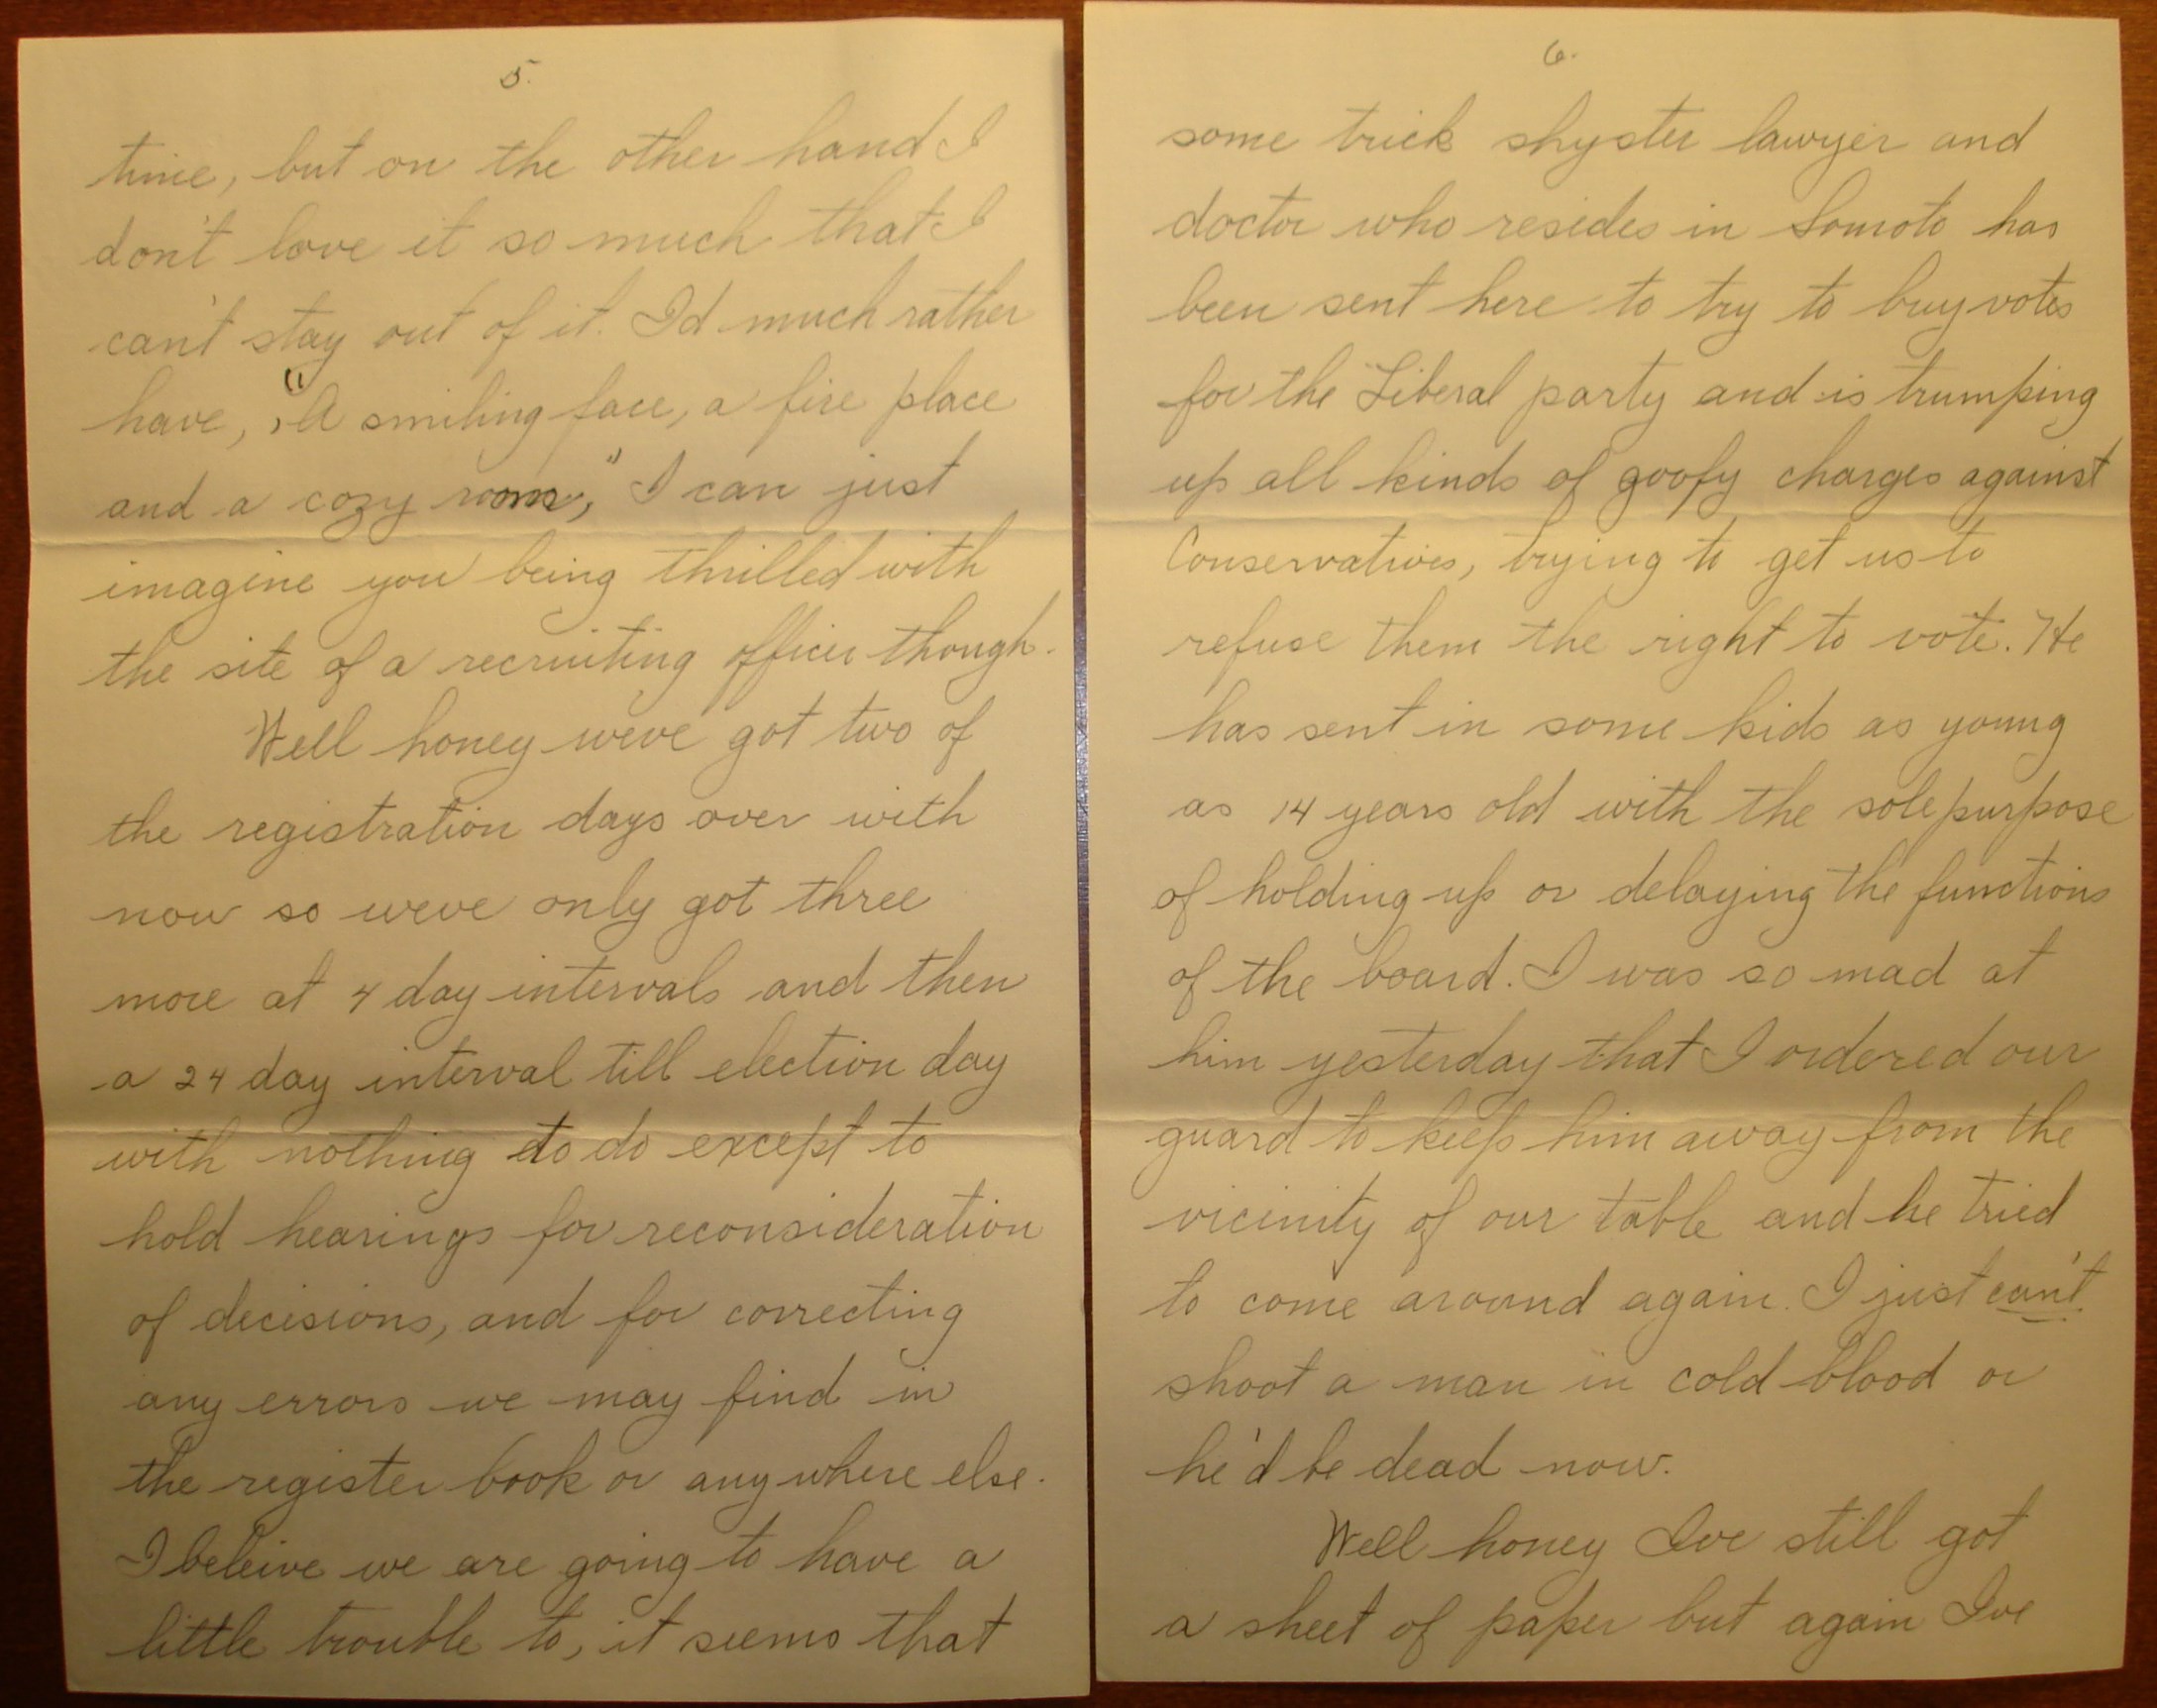 5.
time, but on the other hand I
don't love it so much that I
can't stay out of it. I'd much rather
have, "A smiling face, a fire place
and a cozy room," I can just
imagine you being thrilled with
the site of a recruiting officer though.
Well honey weve got two of
the registration days over with
now so weve only got three
more at 4 day intervals and then
a 24 day interval till election day
with nothing to do except to
hold hearings for reconsideration
of decisions, and for correcting
any errors we may find in
the register book or any where else.
I beleive we are going to have a
little trouble to, it seems that
6.
some trick shyster lawyer and
doctor who resides in Somoto has
been sent here to try to buy votes
for the Liberal party and is trumping
up all kinds of goofy charges against
Conservatives, trying to get us to
refuse them the right to vote. He
has sent in some kids as young
as 14 years old with the sole purpose
of holding up or delaying the functions
of the board. I was so mad at
him yesterday that I ordered our
guard to keep him away from the
vicinity of our table and he tried
to come around again. I just can't
shoot a man in cold blood or
he'd be dead now.
Well honey Ive still got
a sheet of paper but again Ive